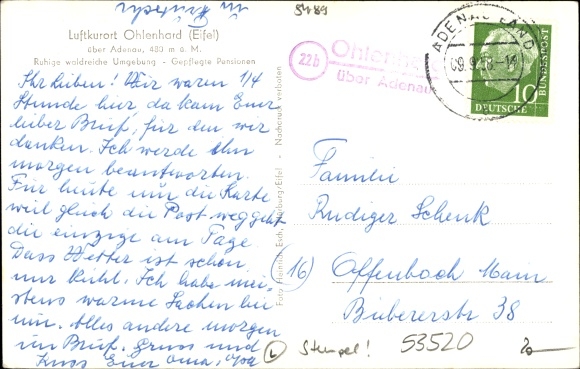 5489
Luftkurort Ohlenhard (Eifel)
über Adenau, 483 m ü. M.
Ruhige waldreiche Umgebung - Gepflegte Pensionen
Ihr Lieben! Wir waren 1/4
Stunde hier da kam Euer
lieber Brief, für den wir
danken. Ich werde ihn
morgen beantworten.
Für heute nur die Karte
weil gleich die Post weggeht
die einzige am Tage
Dass Wetter ist schön
nur kühl. Ich habe mei-
stens warme Sachen hie
um. Alles andere morgen
im Brief. Gruss und
Kuss Euer Oma, Opa
Nachdruck verboten
22b
Ohlenhard
über Adenau
ADENAU LAND
DEUTSCHE
BUNDESPOST
10
Familie
Rudiger Schenk
(16) Offenbach Main
Biebererstr 38
L
Stempel!
53520